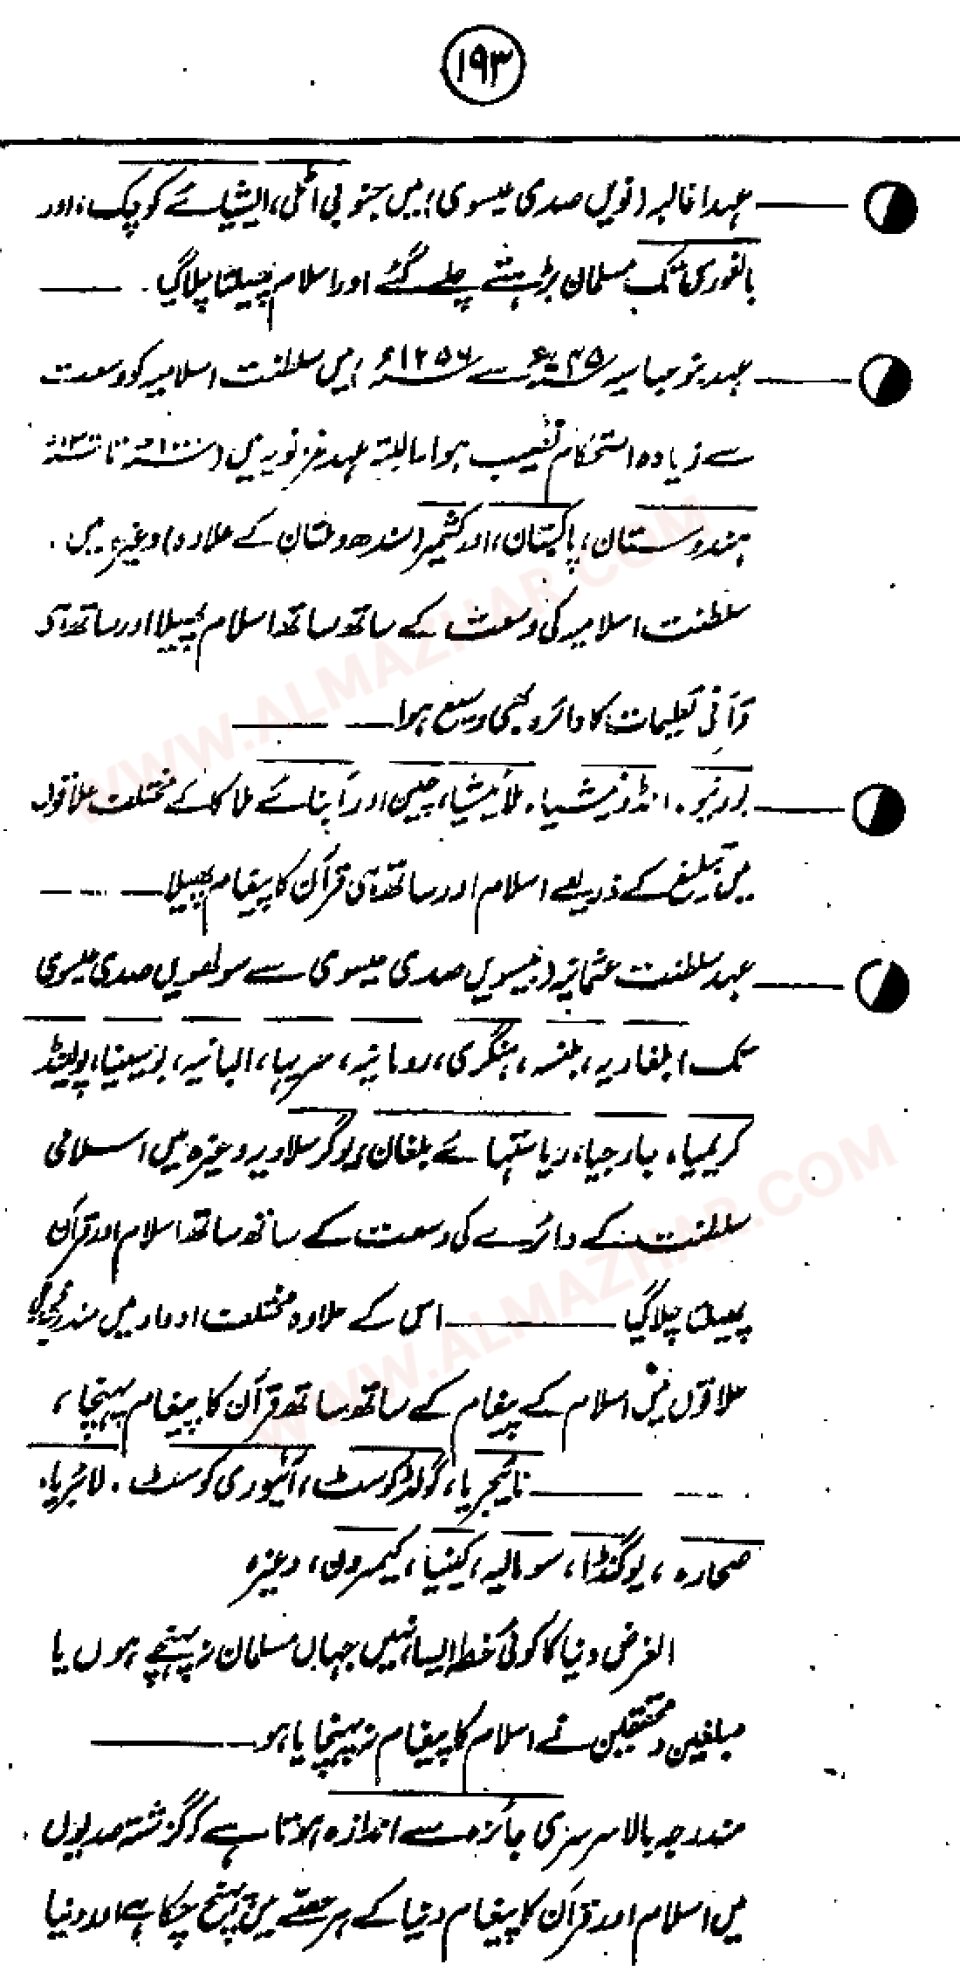 ۱۹۳
عہد اغالبہ (نویں صدی عیسوی) میں جنوبی اٹلی، ایشیائے کوچک، اور
بالغوری تک مسلمان بڑھتے چلے گئے اور اسلام پھیلتا چلا گیا ۔
عہد بنو عباسیہ ۷۴۵ء سے ۱۲۵۶ء میں سلطنت اسلامیہ کو وسعت
سے زیادہ استحکام نصیب ہوا، البتہ عہد غزنویہ میں (۱۰۰۰ء تا
ہندوستان، پاکستان، اور کشمیر (سندھ و ملتان کے علاوہ) وغیرہ میں ۔
سلطنت اسلامیہ کی وسعت کے ساتھ ساتھ اسلام پھیلا اور ساتھ ہی
قرآنی تعلیمات کا دائرہ بھی وسیع ہوا
بورنیو ۔ انڈونیشیا ۔ ملائیشیا، چین اور آبنائے ملاکا کے مختلف علاقوں
میں تبلیغ کے ذریعے اسلام اور ساتھ ہی قرآن کا پیغام پھیلا
عہد سلطنت عثمانیہ (تیسویں صدی عیسوی سے سولھویں صدی عیسوی
تک) بلغاریہ، بلنسہ، ہنگری، رومانیہ، سربیا، البانیہ، بوسینیا، پولینڈ
کریمیا، بارجیا، ریاستہائے بلغان، یوگوسلاویہ وغیرہ میں اسلامی
سلطنت کے دائرے کی وسعت کے ساتھ ساتھ اسلام اور قرآن
پھیلتا چلا گیا اس کے علاوہ مختلف ادوار میں مندرجہ ذیل
علاقوں میں اسلام کے پیغام کے ساتھ ساتھ قرآن کا پیغام پہنچا،
نائیجریا، گولڈ کوسٹ، آئیوری کوسٹ ۔ لائبریا،
صحارہ، یوگنڈا، سومالیہ، کینیا، کیمرون، وغیرہ
الغرض دنیا کا کوئی خطہ ایسا نہیں جہاں مسلمان نہ پہنچے ہوں یا
مبلغین و محققین نے اسلام کا پیغام نہ پہنچایا ہو
مندرجہ بالا سرسری جائزہ سے اندازہ ہوتا ہے کہ گزشتہ صدیوں
میں اسلام اور قرآن کا پیغام دنیا کے ہر حصے میں پہنچ چکا ہے اور دنیا
WWW.ALMAZHAR.COM
WWW.ALMAZHAR.COM